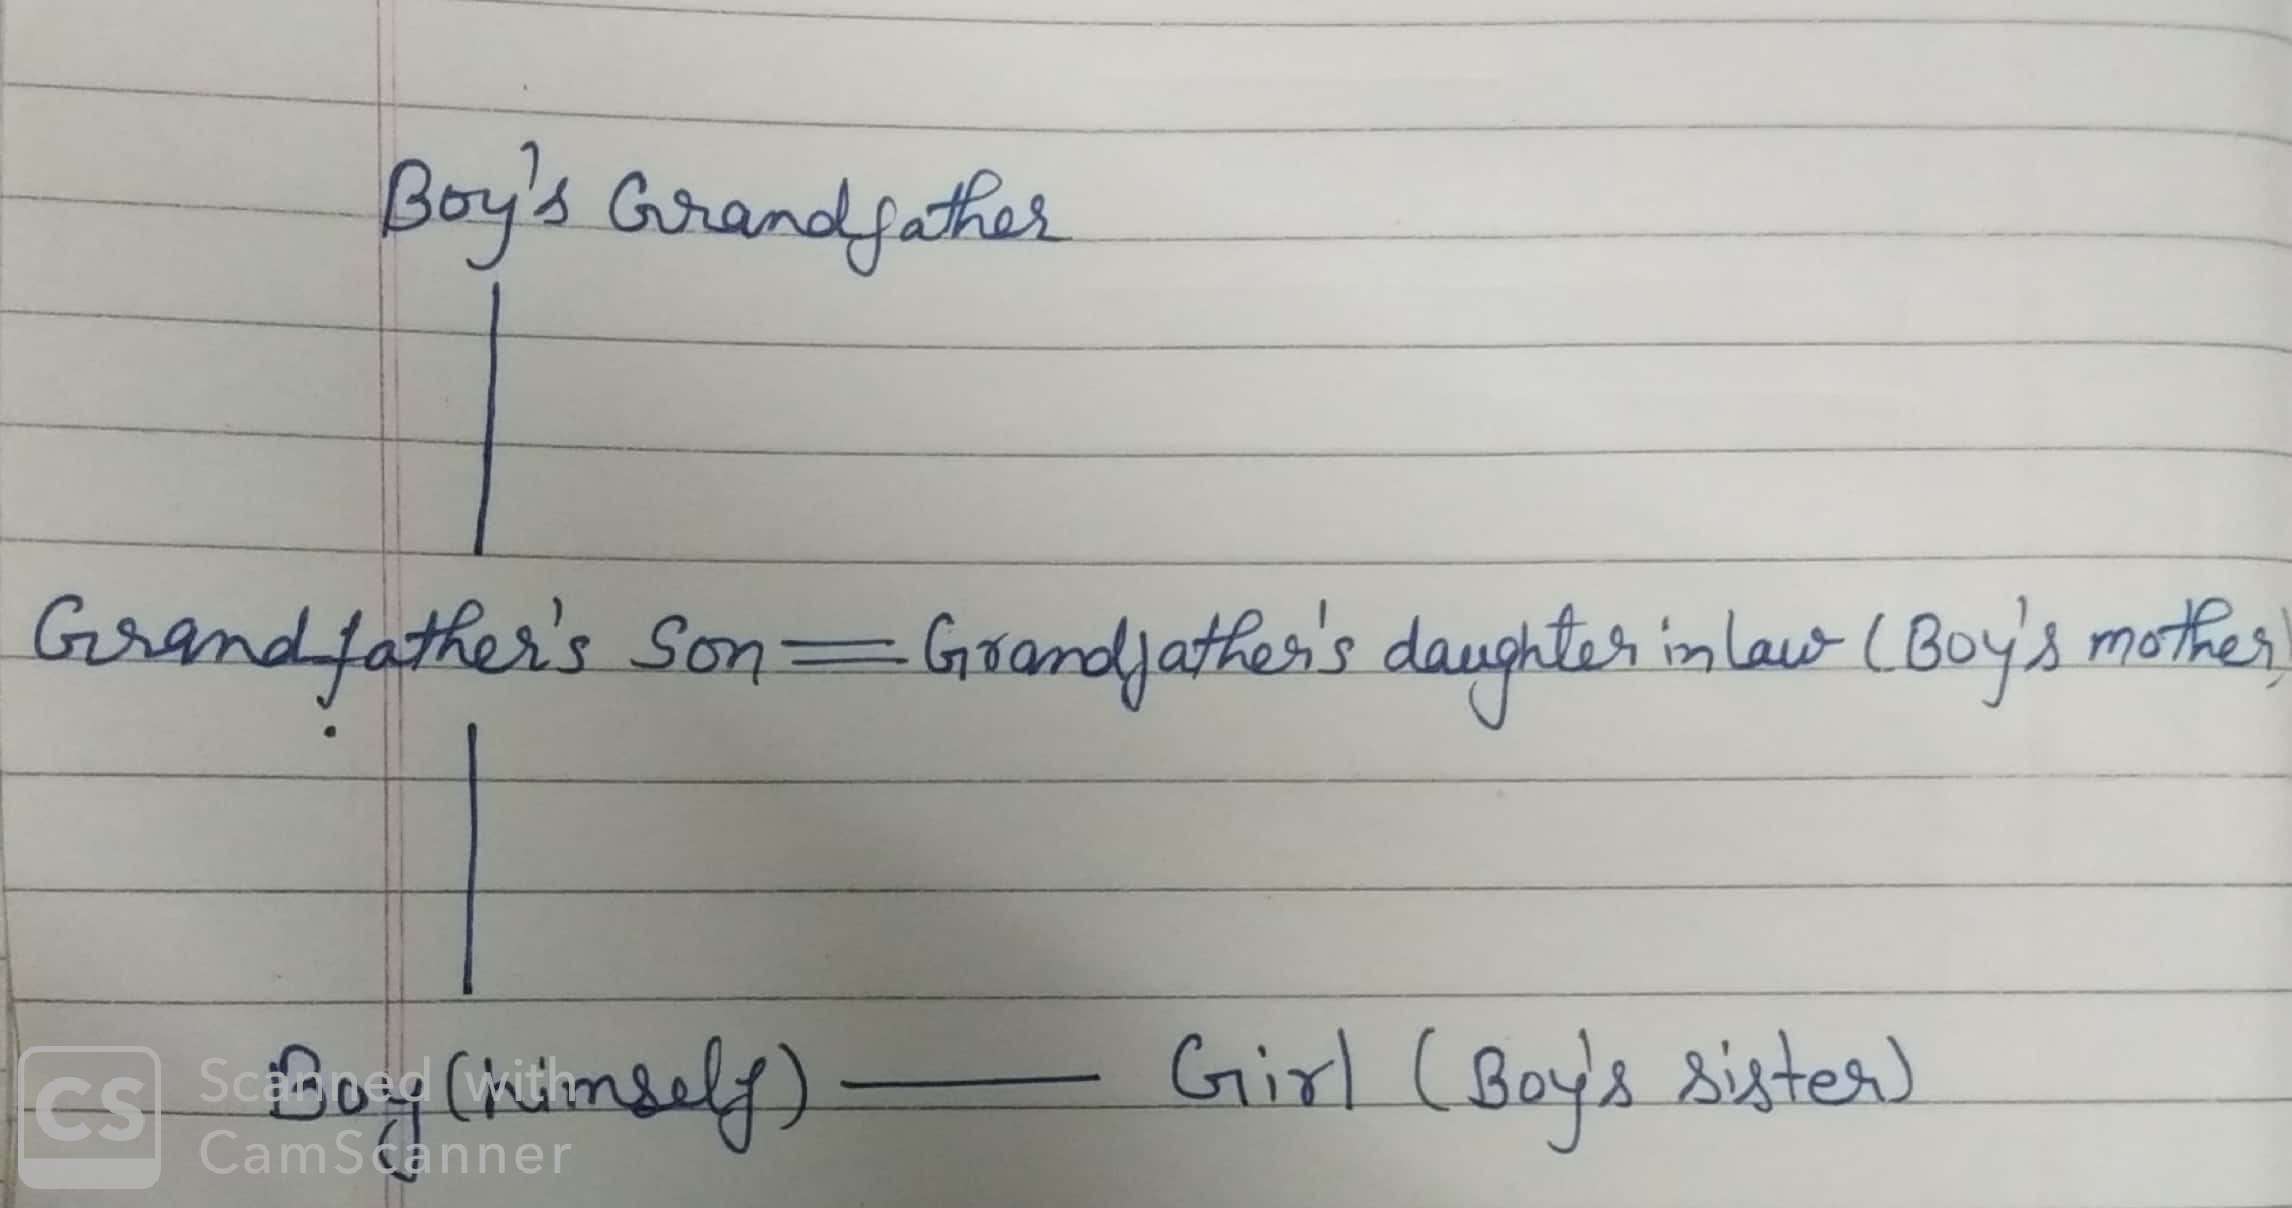 Boy's Grandfather
Grandfather's Son = Grandfather's daughter in law (Boy's mother)
Boy (himself) — Girl (Boy's sister)
CS Scanned with
CamScanner